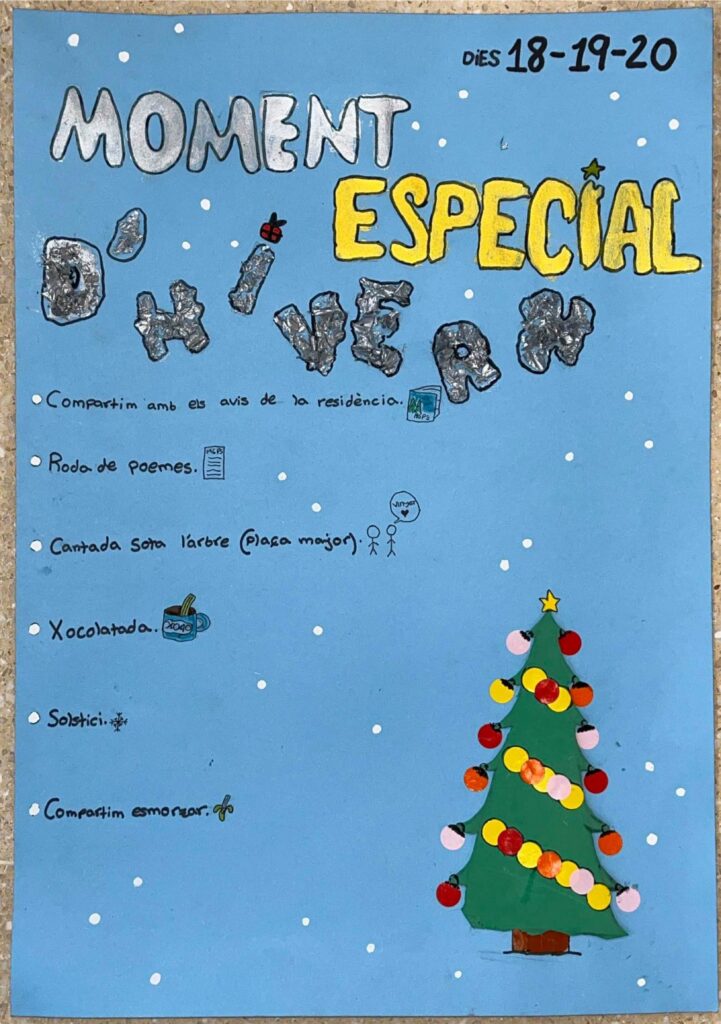 DiES 18-19-20
MOMENT
ESPECIAL
D'HIVERN
Compartim amb els avis de la residència.
Roda de poemes.
Cantada sota l'arbre (plaça major).
Xocolatada.
XOCO
Solstici.
Compartim esmorzar.